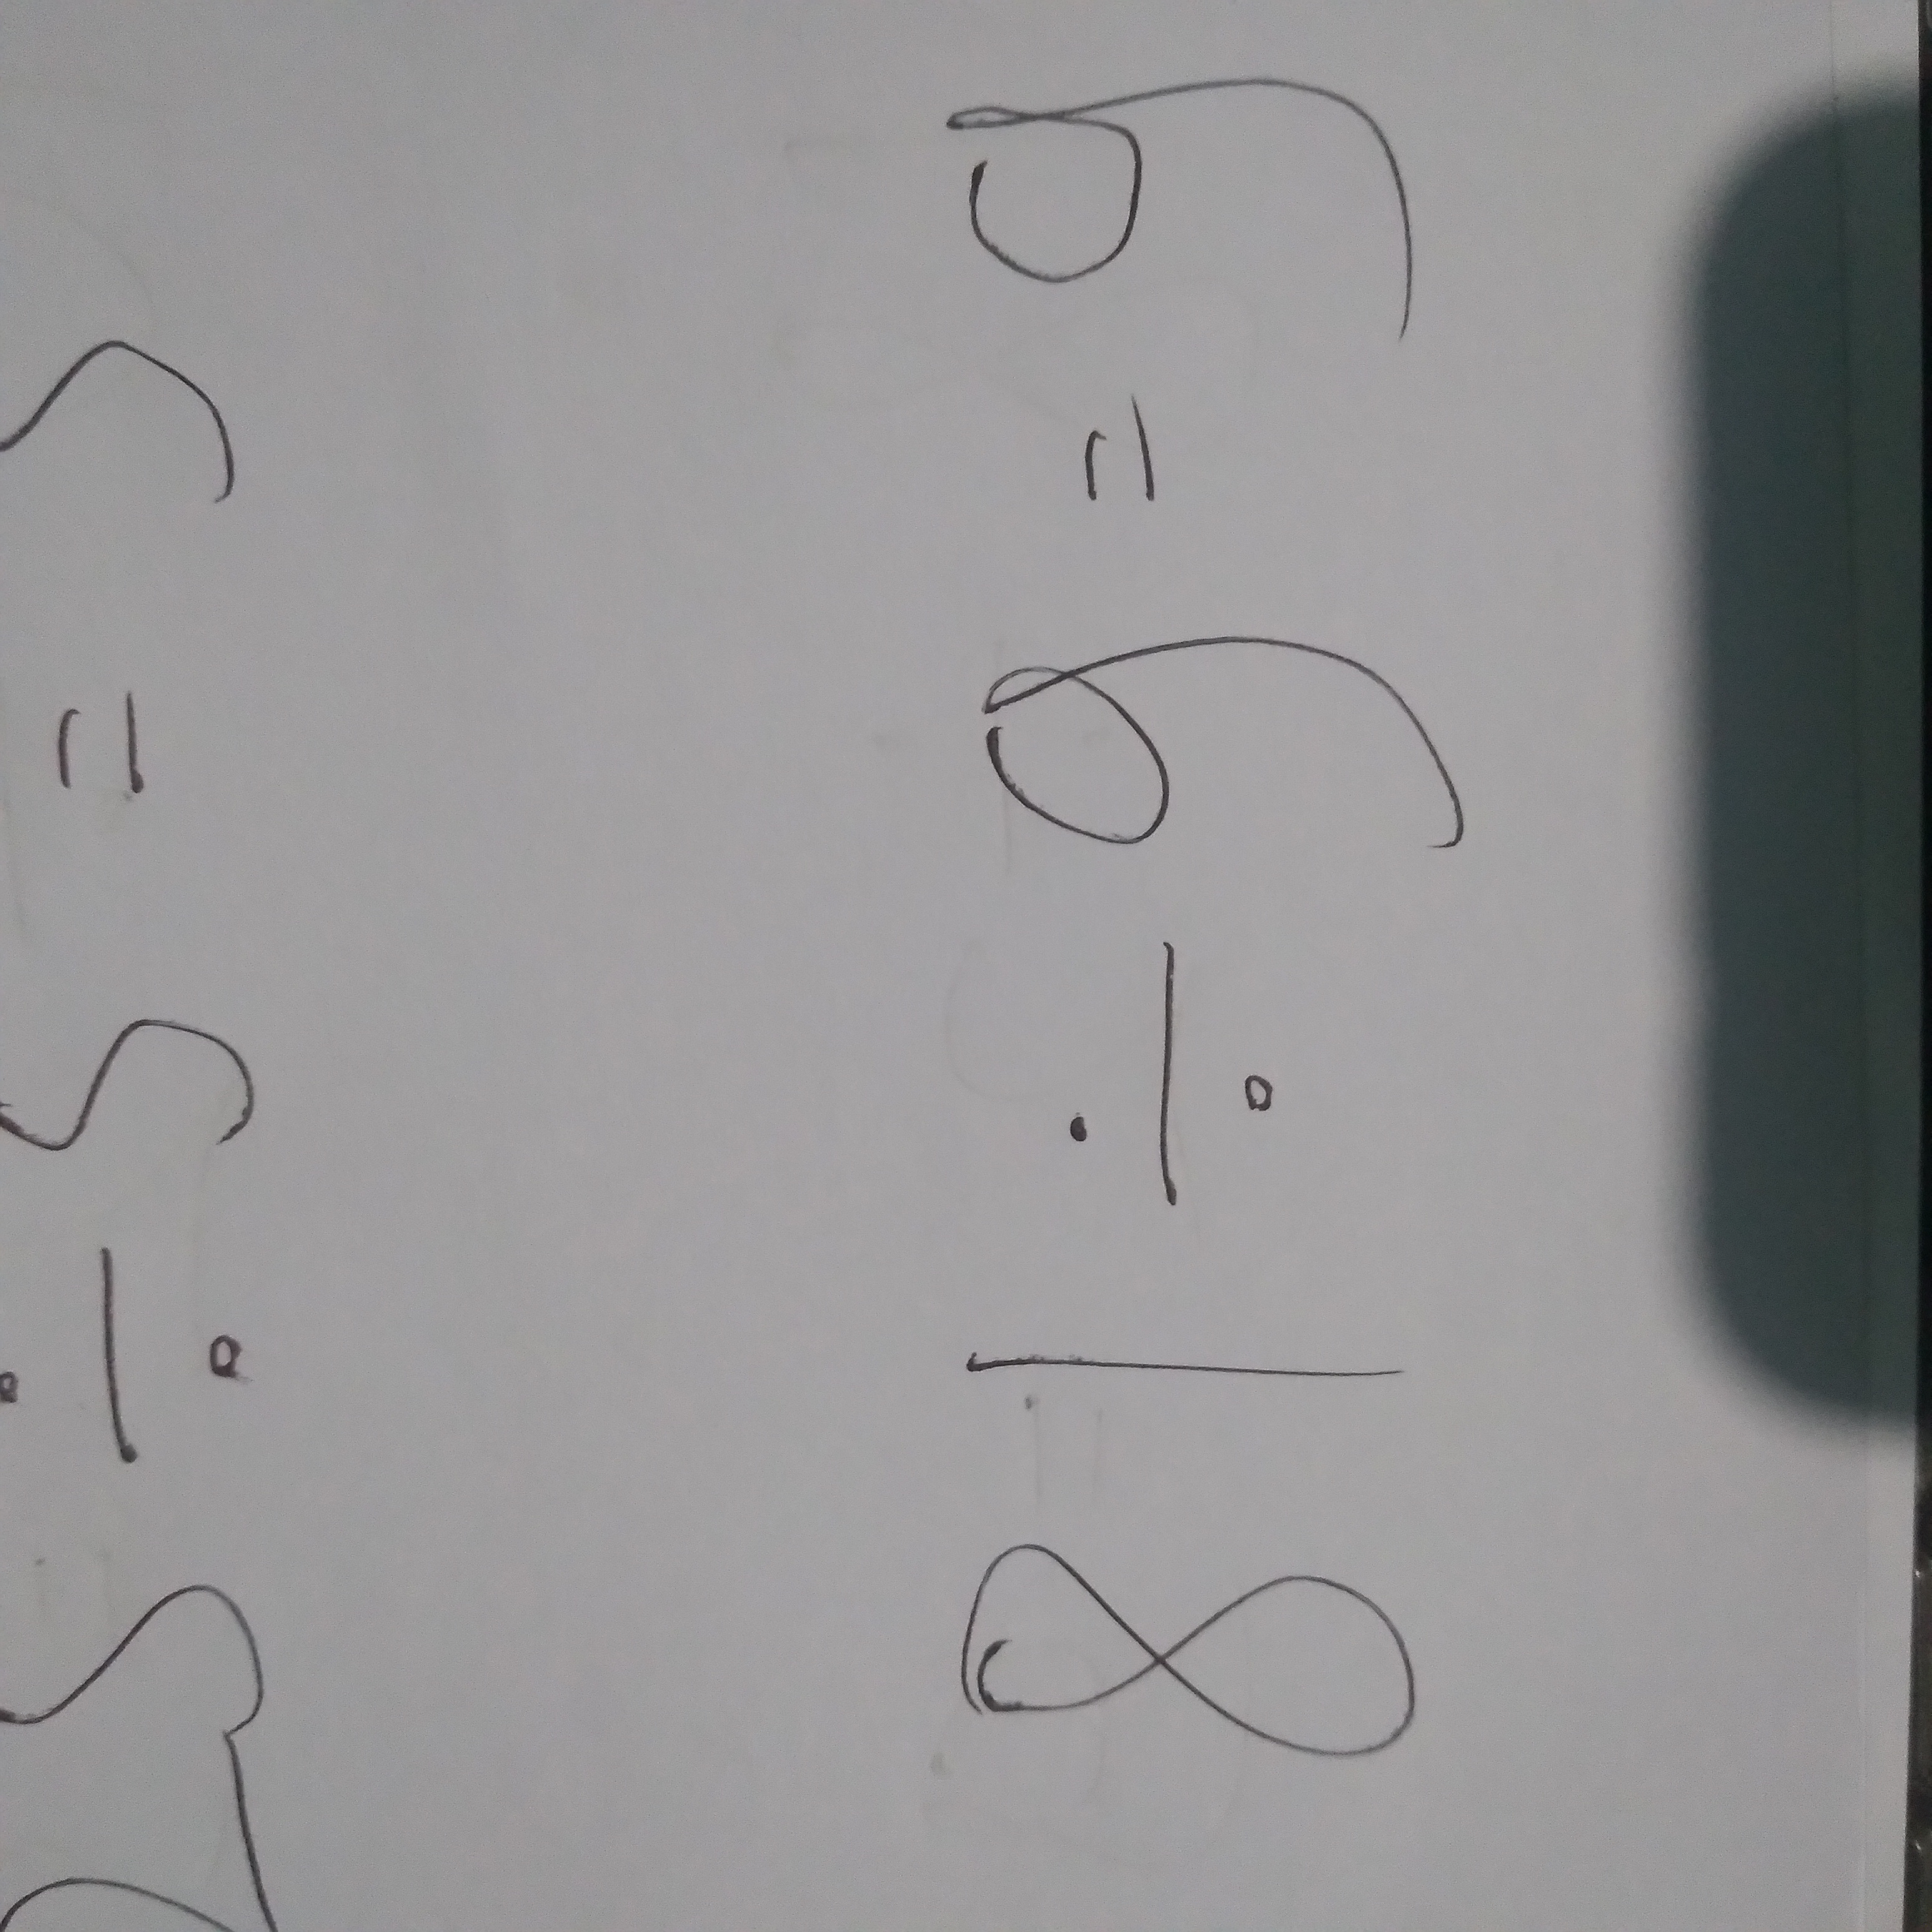 25 ÷ 5 = 5
81 ÷ 9 = 9